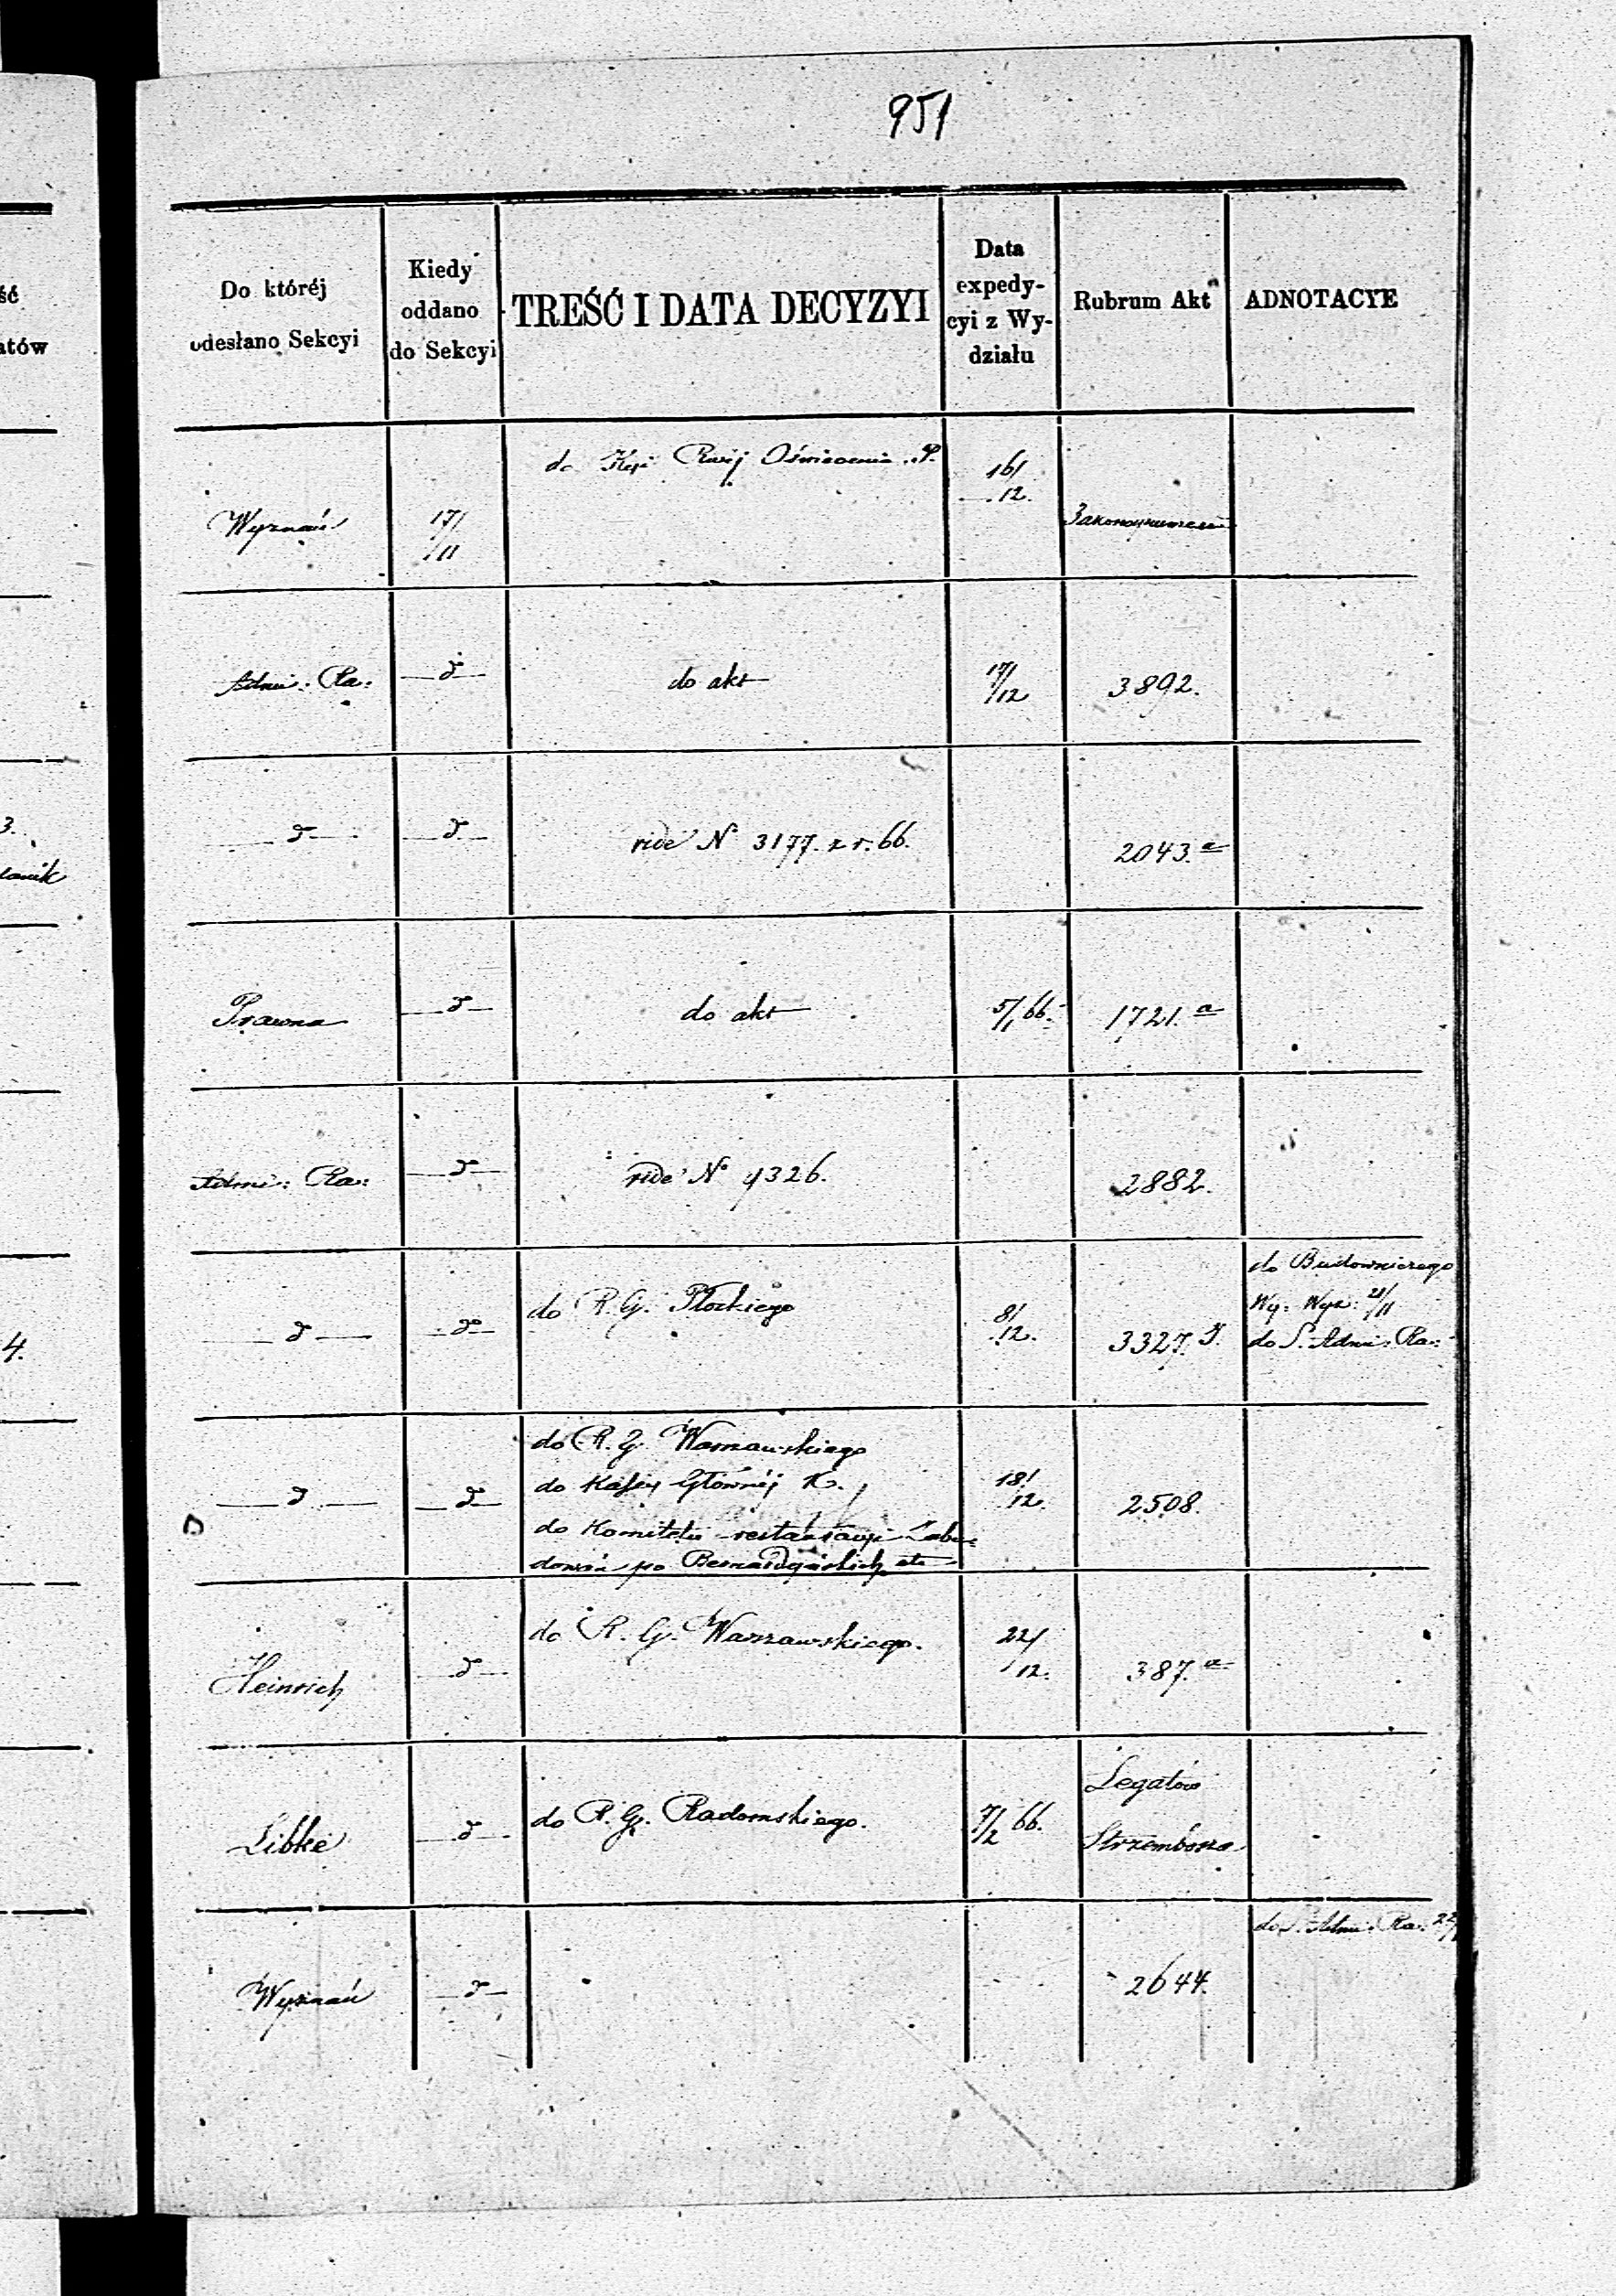 951
ść
atów
Do któréj
odesłano Sekcyi
Kiedy
oddano
do Sekcyi
TREŚĆ I DATA DECYZYI
Data
expedy-
cyi z Wy-
działu
Rubrum Akt
ADNOTACYE
do Kyi Rwéj Oświecenia P.
16/
12.
Wyznań
17/
/11
Admi: Ra:
d
do akt
17/
/12
3892.
3.
d
d
vide N° 3177. z r. 66.
2043. a
Prawna
d
do akt
5/1 66.
1721. a
Admi: Ra:
d
vide N° 4326.
2882.
4.
d
d
do R. G. Płockiego
8/
12.
3327.
do Budowniczego
Wy: Wyz: 21/11
do S. Admi: Ra:
d
d
do R. G. Warszawskiego
do Kassy Głównéj K.
do Komitetu restauracyi Zabu=
dowań po Bernardyńskich etc
18/
12.
2508.
Heinrich
d
do R. G. Warszawskiego.
22/
/12.
387. a
Libkie
d
do R. G. Radomskiego.
7/2 66.
Legatów
Strzembosza
Wyznań
d
2644.
do S. Admi: Ra. 22/